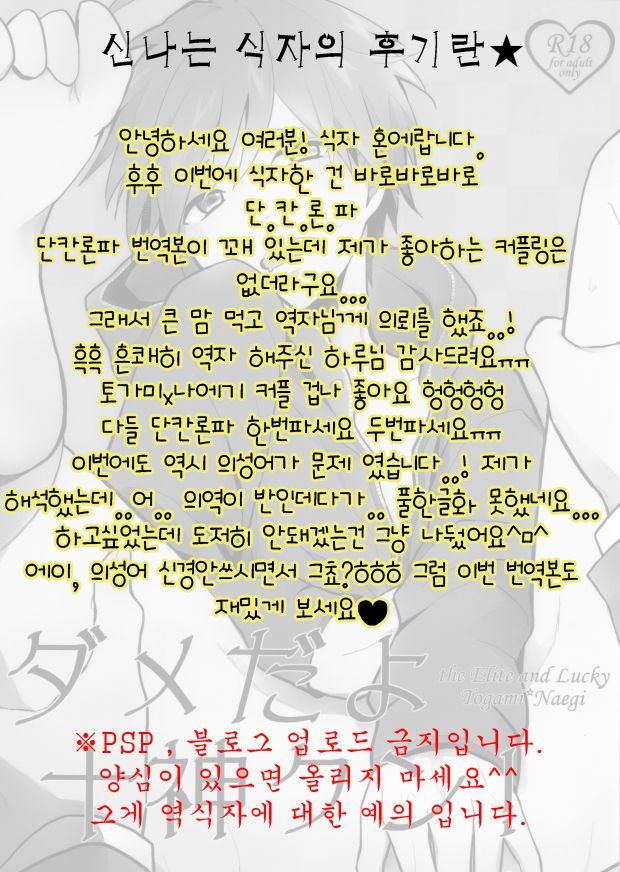 신나는 식자의 후기란★
R18
for adult
only
안녕하세요 여러분! 식자 혼에랍니다.
후후 이번에 식자한 건 바로바로바로
단.칸.론.파
단칸론파 번역본이 꽤 있는데 제가 좋아하는 커플링은
없더라구요...
그래서 큰 맘 먹고 역자님께 의뢰를 했죠..!
흑흑 흔쾌히 역자 해주신 하루님 감사드려요ㅠㅠ
토가미x나에기 커플 겁나 좋아요 헝헝헝헝
다들 단칸론파 한번파세요 두번파세요ㅠㅠ
이번에도 역시 의성어가 문제 였습니다..! 제가
해석했는데..어.. 의역이 반인데다가.. 풀한글화 못했네요...
하고싶었는데 도저히 안돼겠는건 그냥 나뒀어요^ㅁ^
에이, 의성어 신경안쓰시면서 그쵸?ㅎㅎㅎ 그럼 이번 번역본도
재밌게 보세요♥
ダメだよ
the Elite and Lucky
Togami*Naegi
十神クン!
※PSP , 블로그 업로드 금지입니다.
양심이 있으면 올리지 마세요^^
그게 역식자에 대한 예의 입니다.